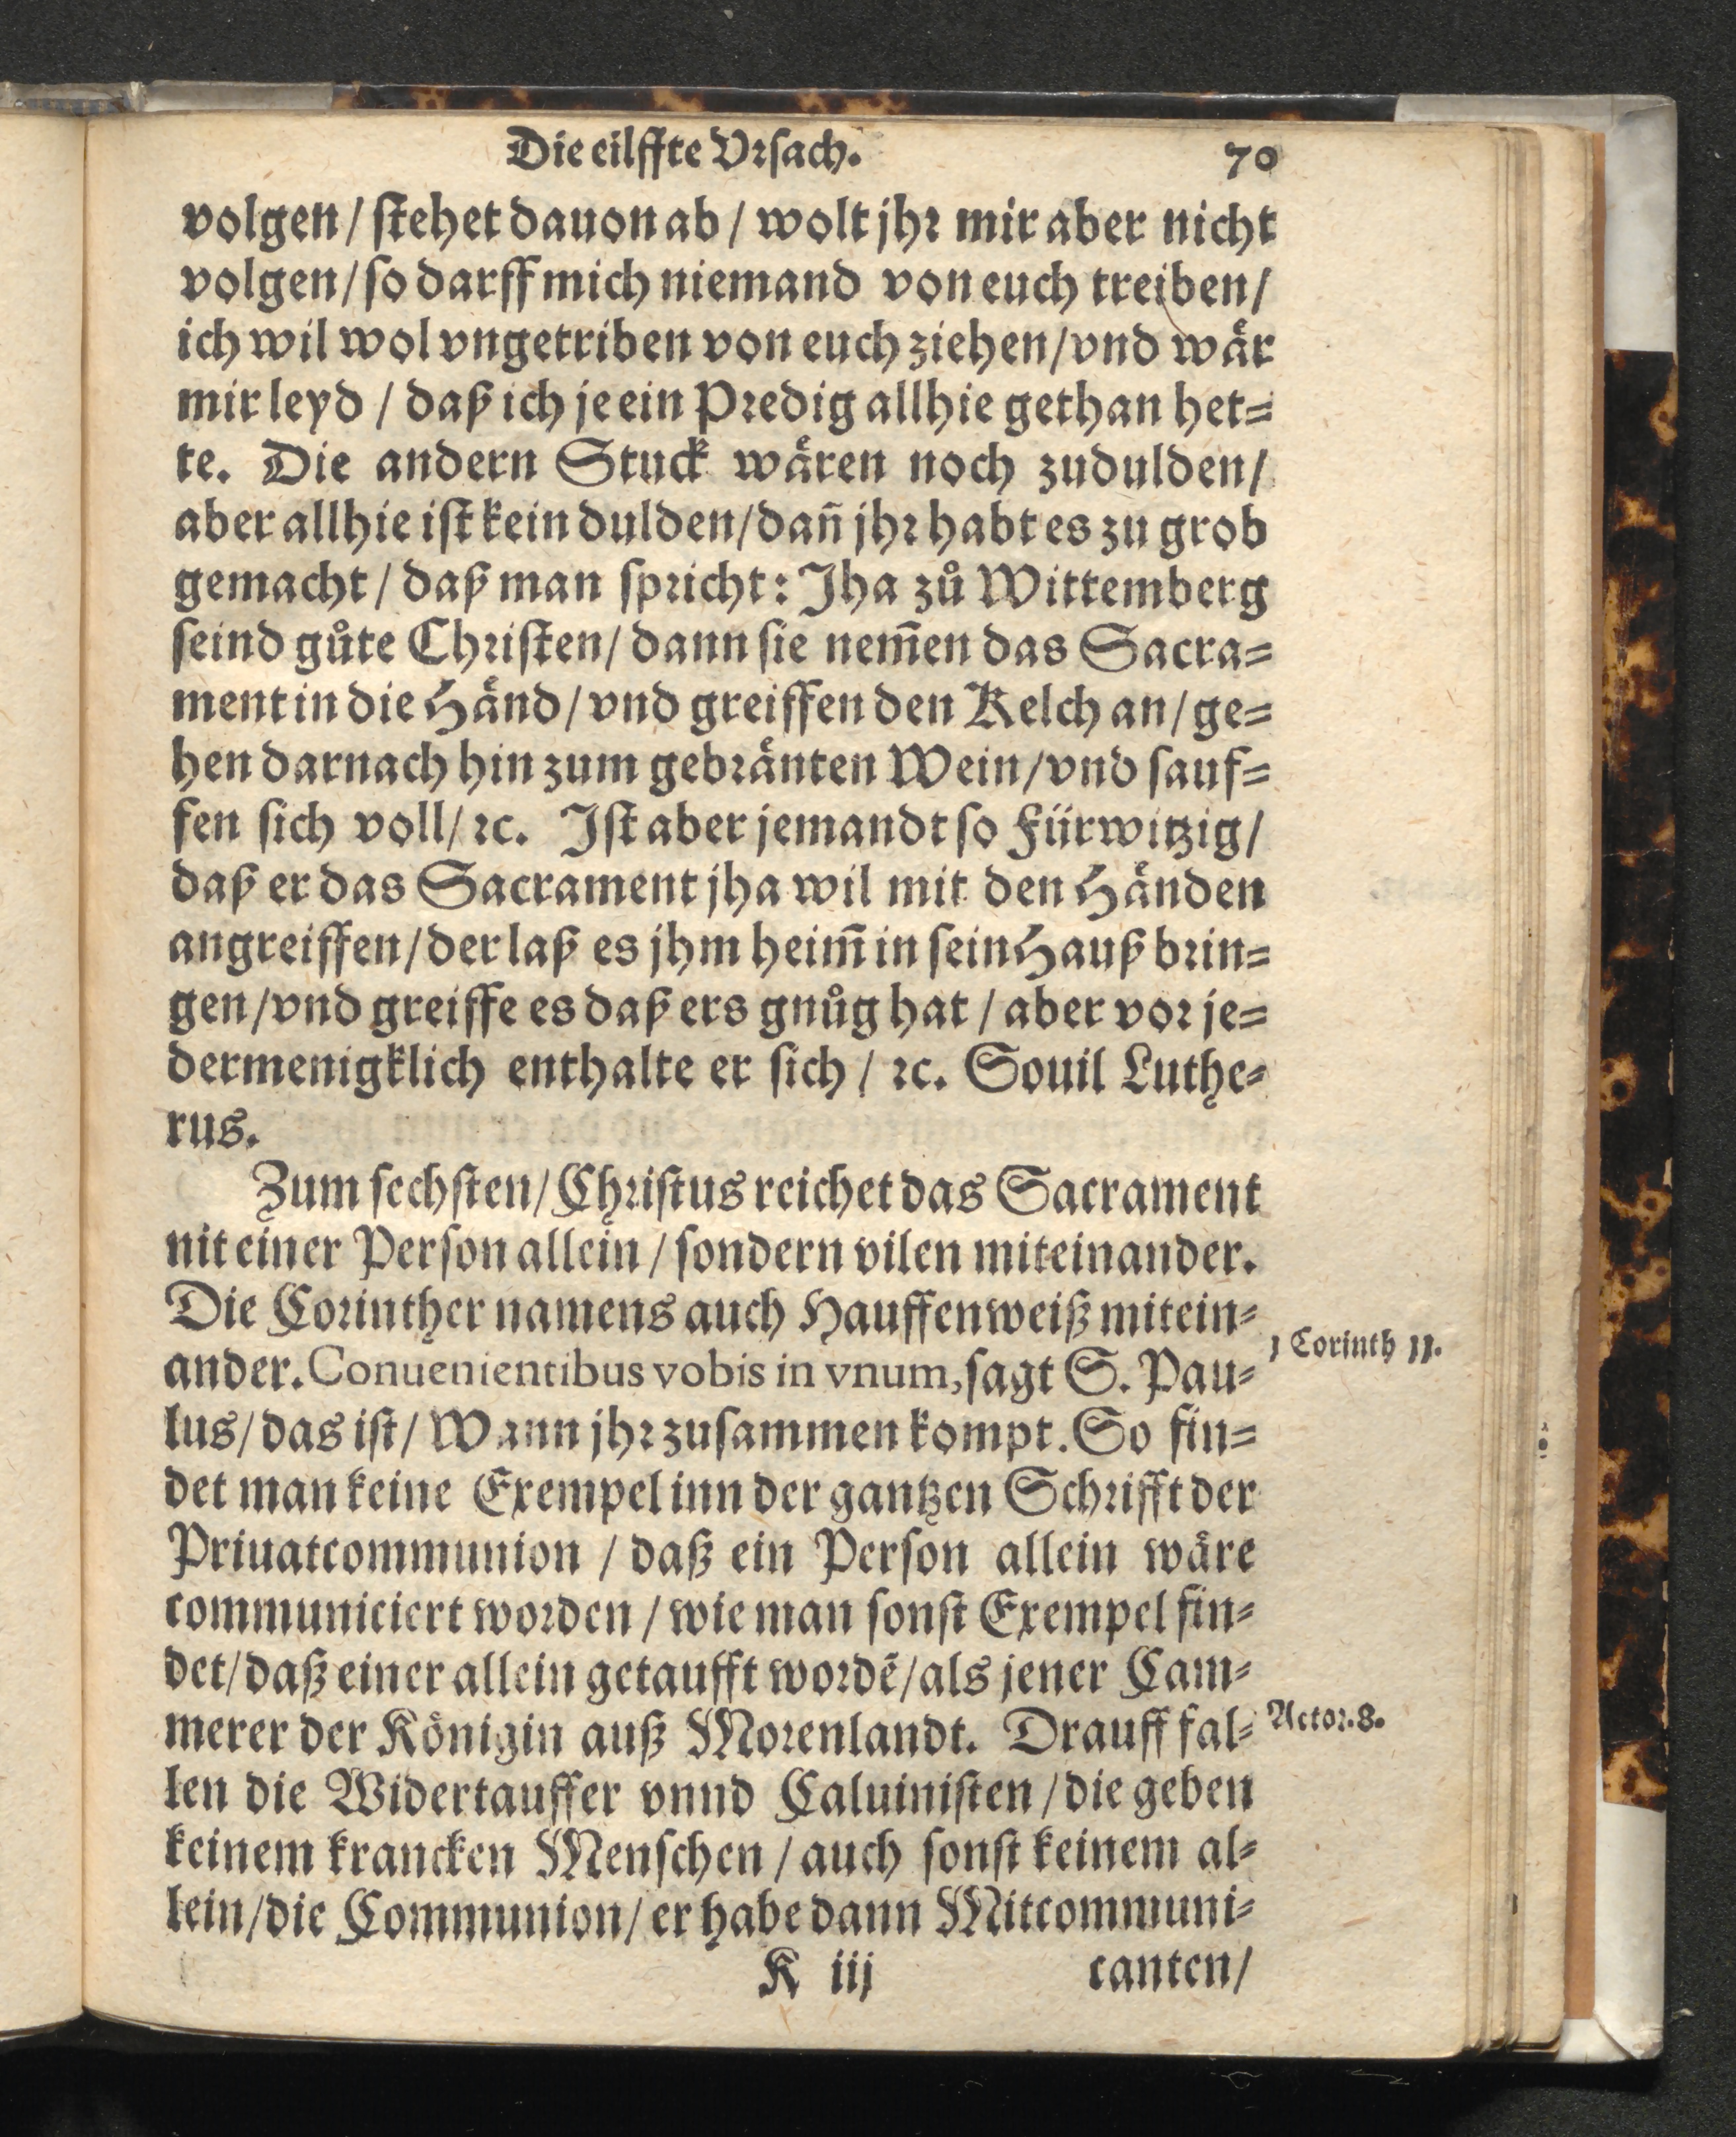 Die eilffte Vrsach. 70
volgen/ stehet dauon ab/ wolt jhr mir aber nicht
volgen/ so darff mich niemand von euch treiben/
ich wil wol vngetriben von euch ziehen/ vnd wår
mir leyd/ daß ich je ein Predig allhie gethan het=
te. Die andern Stuck wåren noch zudulden/
aber allhie ist kein dulden/ dañ jhr habt es zu grob
gemacht/ daß man spricht: Jha zů Wittemberg
seind gůte Christen/ dann sie nem̃en das Sacra=
ment in die Hånd/ vnd greiffen den Kelch an/ ge=
hen darnach hin zum gebrånten Wein/ vnd sauf=
fen sich voll/ ꝛc. Ist aber jemandt so Fürwitzig/
daß er das Sacrament jha wil mit den Hånden
angreiffen/ der laß es jhm heim̃ in sein Hauß brin=
gen/ vnd greiffe es daß ers gnůg hat/ aber vor je=
dermenigklich enthalte er sich/ ꝛc. Souil Luthe=
rus.
Zum sechsten/ Christus reichet das Sacrament
nit einer Person allein/ sondern vilen miteinander.
Die Corinther namens auch Hauffenweiß mitein=
ander. Conuenientibus vobis in vnum, sagt S. Pau=
1 Corinth 11.
lus/ das ist/ Wann jhr zusammen kompt. So fin=
det man keine Exempel inn der gantzen Schrifft der
Priuatcommunion/ daß ein Person allein wåre
communiciert worden/ wie man sonst Exempel fin=
det/ daß einer allein getaufft wordẽ/ als jener Cam=
merer der Königin auß Morenlandt. Drauff fal=
Actor. 8.
len die Widertauffer vnnd Caluinisten/ die geben
keinem krancken Menschen/ auch sonst keinem al=
lein/ die Communion/ er habe dann Mitcommuni=
K iij canten/